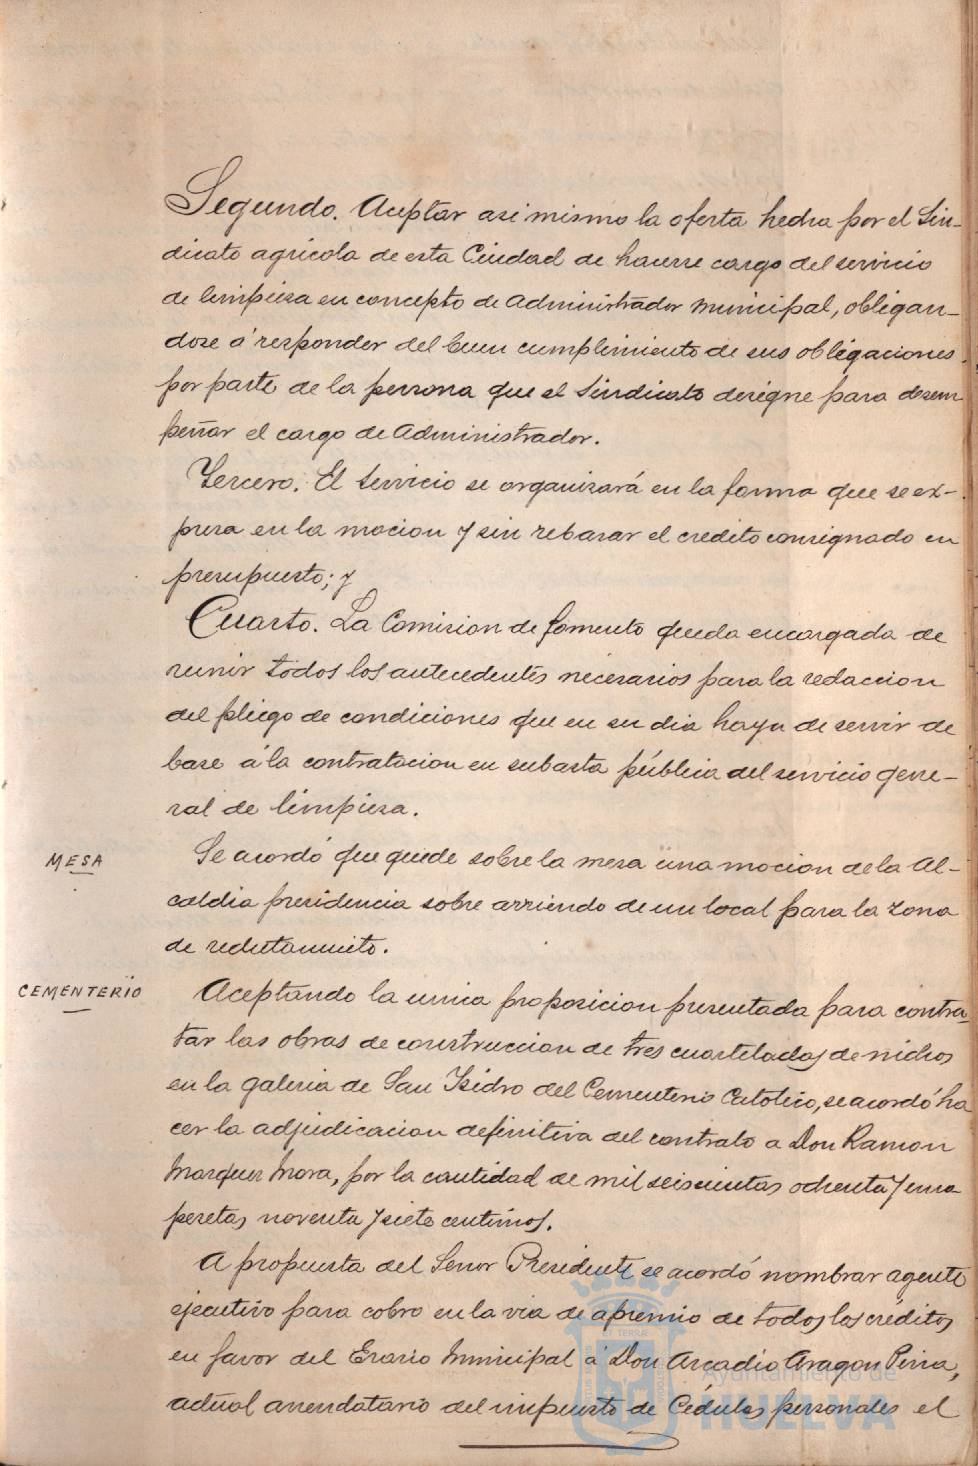 Segundo. Aceptar asi mismo la oferta hecha por el Sin-
dicato agricola de esta Ciudad de hacerse cargo del servicio
de limpieza en concepto de Administrador municipal, obligan-
dose á responder del buen cumplimiento de sus obligaciones
por parte de la persona que el Sindicato designe para desem
peñar el cargo de Administrador.
Tercero. El servicio se organizará en la forma que se ex-
presa en la mocion y sin rebasar el credito consignado en
presupuesto; y
Cuarto. La Comision de fomento queda encargada de
reunir todos los antecedentes necesarios para la redaccion
del pliego de condiciones que en su dia haya de servir de
base á la contratacion en subasta pública del servicio gene-
ral de limpieza.
MESA
Se acordó que quede sobre la mesa una mocion de la Al-
caldia presidencia sobre arriendo de un local para la zona
de reclutamiento.
CEMENTERIO
Aceptando la unica proposicion presentada para contra-
tar las obras de construccion de tres cuarteladas de nichos
en la galeria de San Isidro del Cementerio Catolico, se acordó ha
cer la adjudicacion definitiva del contrato a Don Ramon
Marquez Mora, por la cantidad de mil seiscientas ochenta y una
pesetas noventa y siete centimos.
A propuesta del Señor Presidente se acordó nombrar agente
ejecutivo para cobro en la via de apremio de todos los créditos
en favor del Erario Municipal á Don Arcadio Aragon
actual arrendatario del impuesto de Cédulas personales el
Ayuntamiento de
HUELVA